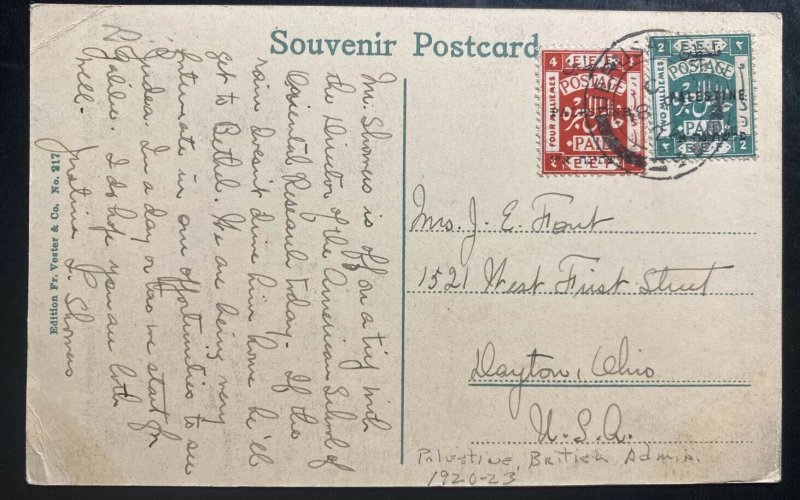 Souvenir Postcard
Mr. Showers is off on a trip with
the Director of the American School of
Oriental Research today. If the
rain doesn't drive him home he'll
get to Bethel. We are being very
fortunate in our opportunities to see
Judea. In a day or two we start for
Galilee. I do hope you are both
well.
Justina Showers
Edition Fr. Vester & Co. No. 217
4 E.E.F. 4
POSTAGE
FOUR MILLIEMES
PAID
E.E.F.
2 E.E.F. ٢
POSTAGE
PALESTINE
TWO MILLIEMES
PAID
2 E.E.F.
Mrs. J. E. Fout
1521 West First Street
Dayton, Ohio
U.S.A.
Palestine, British Admin.
1920-23